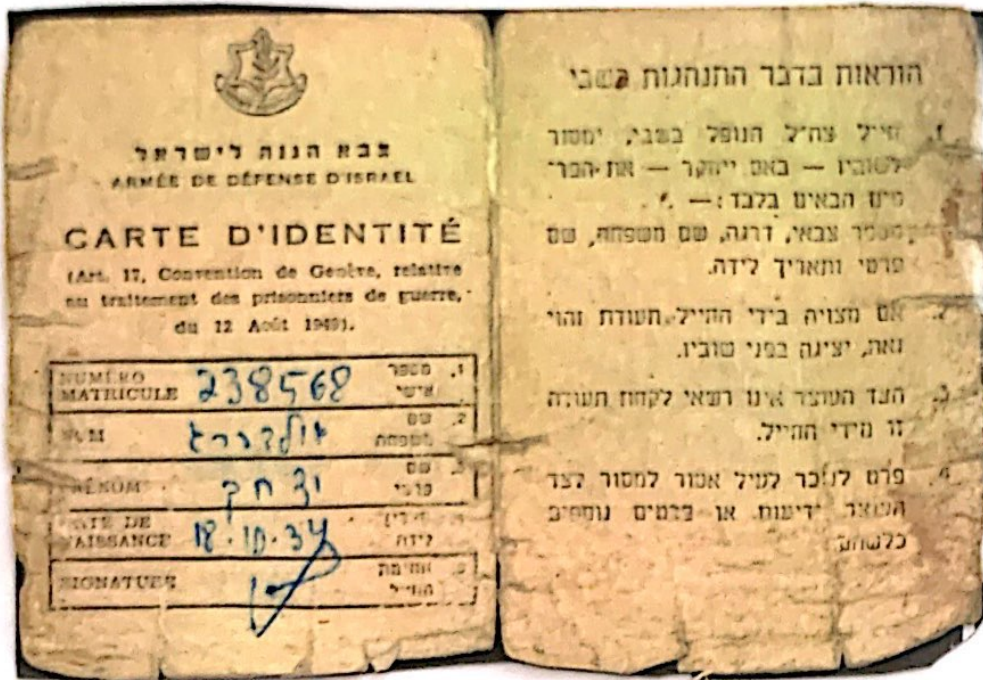 צבא הגנה לישראל
ARMÉE DE DÉFENSE D'ISRAEL
CARTE D'IDENTITÉ
(Art. 17, Convention de Genève, relative
au traitement des prisonniers de guerre,
du 12 Août 1949).
NUMÉRO MATRICULE 238568 1. מספר אישי
NOM 2. שם משפחה
PRÉNOM יצחק 3. שם פרטי
DATE DE NAISSANCE 18.10.34 לידה
SIGNATURE חתימת החייל
הוראות בדבר התנהגות בשבי
1. חייל צה"ל הנופל בשבי, ימסור
לשוביו — באם ייחקר — את הפר־
טים הבאים בלבד: —
מספר צבאי, דרגה, שם משפחה, שם
פרטי ותאריך לידה.
2. אם מצויה בידי החייל תעודת זהוי
זאת, יציגה בפני שוביו.
3. הצד העוצר אינו רשאי לקחת תעודה
זו מידי החייל.
4. פרט לנזכר לעיל אסור למסור לצד
העוצר ידיעות או פרטים נוספים
כלשהם.